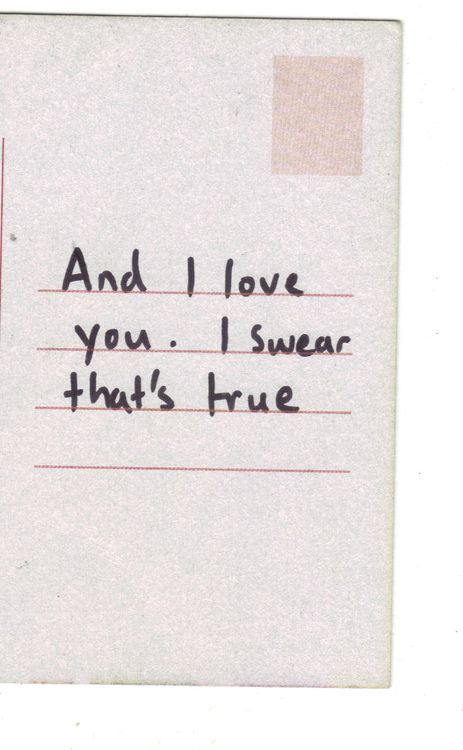 And I love
you. I swear
that's true